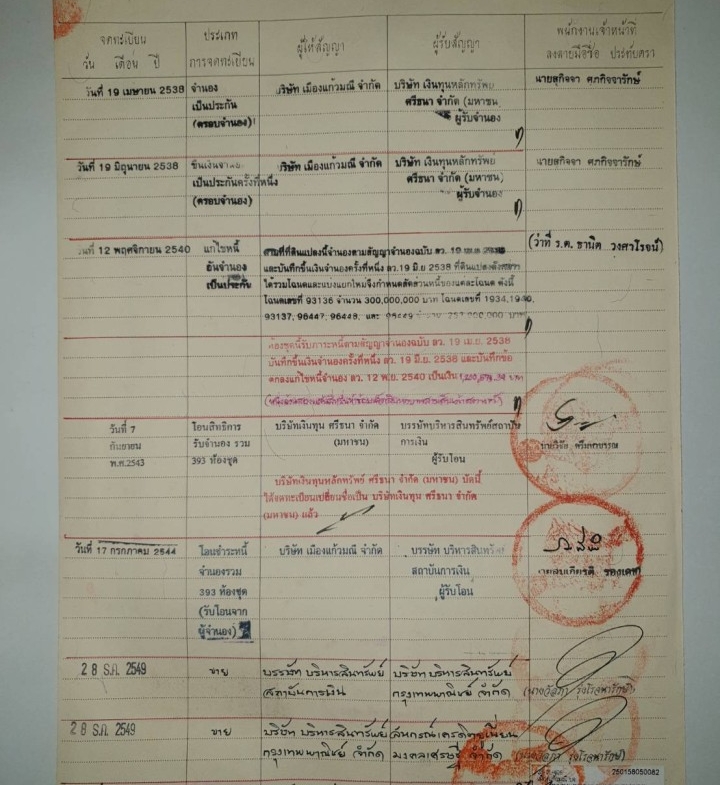 จดทะเบียน
วัน เดือน ปี
ประเภท
การจดทะเบียน
ผู้ให้สัญญา
ผู้รับสัญญา
พนักงานเจ้าหน้าที่
ลงลายมือชื่อ ประทับตรา
วันที่ 19 เมษายน 2538
จำนอง
เป็นประกัน
(ครอบจำนอง)
บริษัท เมืองแก้วมณี จำกัด
บริษัท เงินทุนหลักทรัพย์
ศรีธนา จำกัด (มหาชน
ผู้รับจำนอง
นายสุกิจจา ศภกิจจารักษ์
วันที่ 19 มิถุนายน 2538
ขึ้นเงินจำนอง
เป็นประกันครั้งที่หนึ่ง
(ครอบจำนอง)
บริษัท เมืองแก้วมณี จำกัด
บริษัท เงินทุนหลักทรัพย์
ศรีธนา จำกัด (มหาชน)
ผู้รับจำนอง
นายสุกิจจา ศภกิจจารักษ์
วันที่ 12 พฤศจิกายน 2540
แก้ไขหนี้
อันจำนอง
เป็นประกัน
ตามที่ที่ดินแปลงนี้จำนองตามสัญญาจำนองฉบับ ลว. 19
และบันทึกขึ้นเงินจำนองครั้งที่หนึ่ง ลว.19 มิ.ย 2538 ที่ดินแปลง
ได้รวมโฉนดและแบ่งแยกใหม่จึงกำหนดสัดส่วนหนี้ของแต่ละโฉนด ดังนี้
โฉนดเลขที่ 93136 จำนวน 300,000,000 บาท โฉนดเลขที่ 1934,1940,
93137, 96447, 96448, และ
(ว่าที่ ร.ต. ธานิต วงศาโรจน์)
ห้องชุดนี้รับภาระหนี้ตามสัญญาจำนองฉบับ ลว. 19 เม.ย. 2538
บันทึกขึ้นเงินจำนองครั้งที่หนึ่ง ลว. 19 มิ.ย. 2538 และบันทึกข้อ
ตกลงแก้ไขหนี้จำนอง ลว. 12 พ.ย. 2540 เป็นเงิน
วันที่ 7
กันยายน
พ.ศ.2543
โอนสิทธิการ
รับจำนอง รวม
393 ห้องชุด
บริษัทเงินทุน ศรีธนา จำกัด
(มหาชน)
บรรษัทบริหารสินทรัพย์สถาบัน
การเงิน
ผู้รับโอน
บริษัทเงินทุนหลักทรัพย์ ศรีธนา จำกัด (มหาชน) บัดนี้
ได้จดทะเบียนเปลี่ยนชื่อเป็น บริษัทเงินทุน ศรีธนา จำกัด
(มหาชน) แล้ว
วันที่ 17 กรกฎาคม 2544
โอนชำระหนี้
จำนองรวม
393 ห้องชุด
(รับโอนจาก
ผู้จำนอง)
บริษัท เมืองแก้วมณี จำกัด
บรรษัท บริหารสินทรัพย์
สถาบันการเงิน
ผู้รับโอน
28 ธ.ค. 2549
ขาย
บรรษัท บริหารสินทรัพย์
สถาบันการเงิน
บริษัท บริหารสินทรัพย์
กรุงเทพพาณิชย์ จำกัด
28 ธ.ค. 2549
ขาย
บริษัท บริหารสินทรัพย์
กรุงเทพพาณิชย์ จำกัด
สหกรณ์เครดิตยูเนี่ยน
มงคลเศรษฐี จำกัด
250158050082